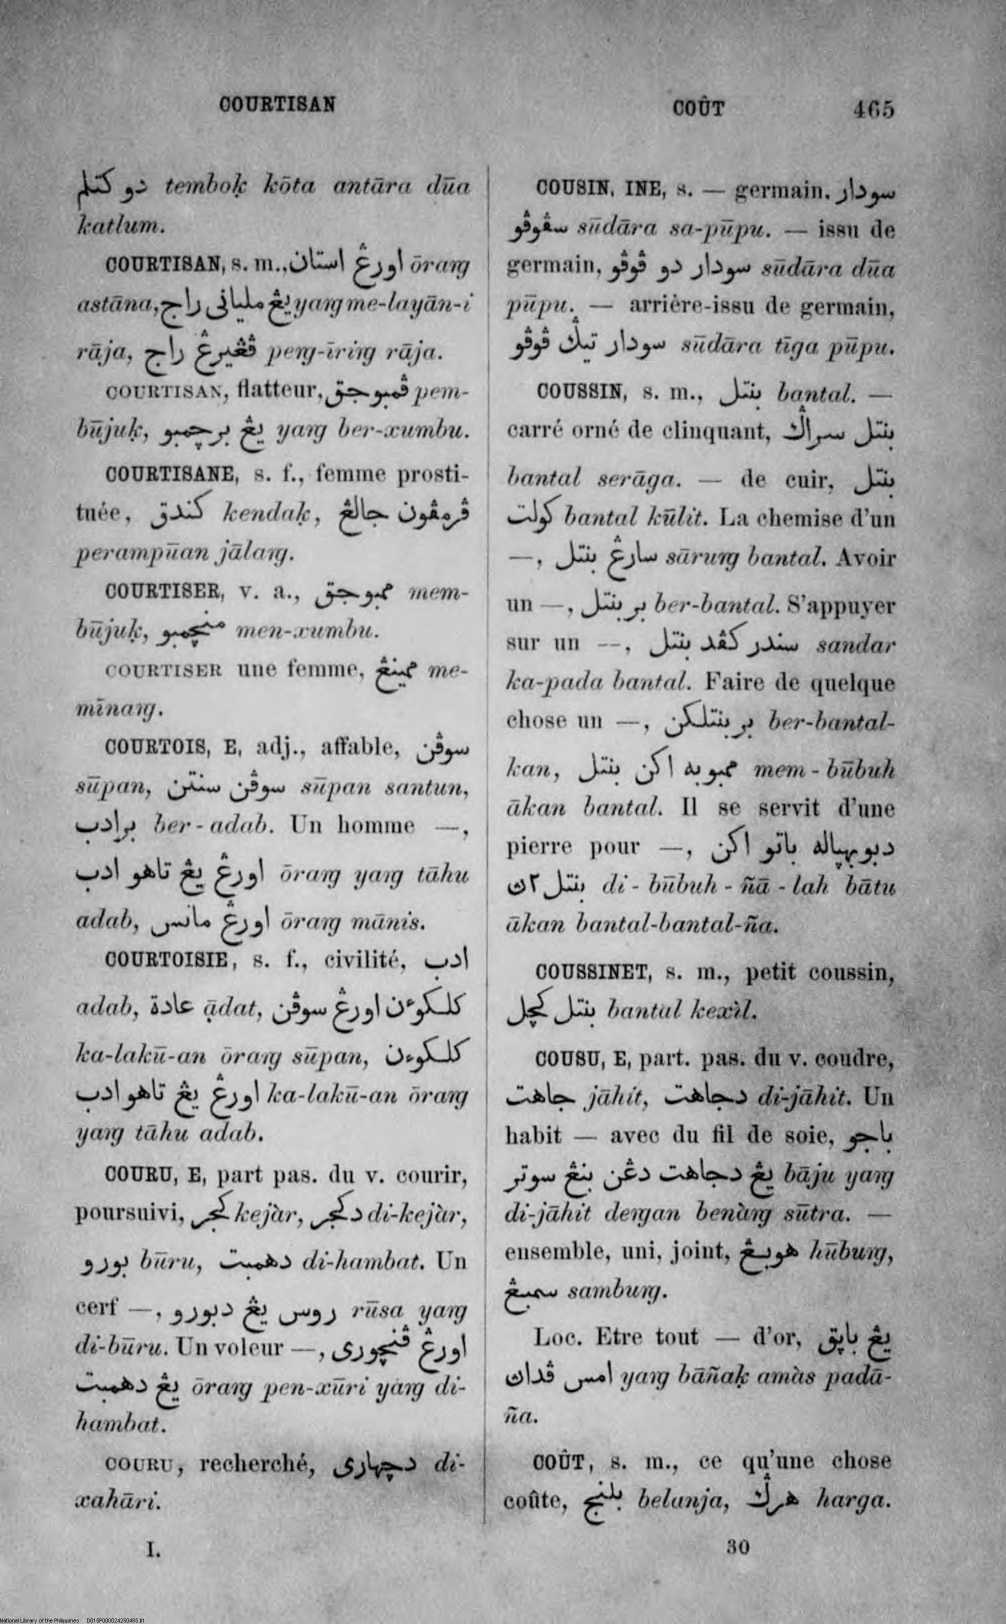 COURTISAN
COÛT
465
دو کتلم temboḳ kōta antāra dūa
katlum.
COURTISAN, s. m., اورڠ استان ōraŋg
astāna, يڠ مليانى راج yaŋg me-layān-i
rāja, ڤڠيرڠ راج peŋg-īriŋg rāja.
COURTISAN, flatteur, ڤمبوجق pem-
būjuḳ, يڠ برچمبو yaŋg ber-xumbu.
COURTISANE, s. f., femme prosti-
tuée, کندق kendaḳ, ڤرمڤون جالڠ
perampūan jālaŋg.
COURTISER, v. a., ممبوجق mem-
būjuḳ, منچمبو men-xumbu.
COURTISER une femme, ممينڠ me-
mīnaŋg.
COURTOIS, E, adj., affable, سوڤن
sūpan, سوڤن سنتن sūpan santun,
برادب ber-adab. Un homme —,
اورڠ يڠ تاهو ادب ōraŋg yaŋg tāhu
adab, اورڠ مانس ōraŋg mānis.
COURTOISIE, s. f., civilité, ادب
adab, عادة ạ̄dat, کلکوءن اورڠ سوڤن
ka-lakū-an ōraŋg sūpan, کلکوءن
اورڠ يڠ تاهو ادب ka-lakū-an ōraŋg
yaŋg tāhu adab.
COURU, E, part pas. du v. courir,
poursuivi, کجر kejàr, دکجر di-kejàr,
بورو būru, دهمبت di-hambat. Un
cerf —, روس يڠ دبورو rūsa yaŋg
di-būru. Un voleur —, اورڠ ڤنچورى
يڠ دهمبت ōraŋg pen-xūri yaŋg di-
hambat.
COURU, recherché, دچهارى di-
xahāri.
I.
COUSIN, INE, s. — germain, سودار
سڤوڤو sūdāra sa-pūpu. — issu de
germain, سودار دو ڤوڤو sūdāra dūa
pūpu. — arrière-issu de germain,
سودار تيݢ ڤوڤو sūdāra tīga pūpu.
COUSSIN, s. m., بنتل bantal. —
carré orné de clinquant, بنتل سراݢ
bantal serāga. — de cuir, بنتل
کولت bantal kūlit. La chemise d'un
—, سارڠ بنتل sāruŋg bantal. Avoir
un —, بربنتل ber-bantal. S'appuyer
sur un —, سندر کڤد بنتل sandar
ka-pada bantal. Faire de quelque
chose un —, بربنتلکن ber-bantal-
kan, ممبوبه اکن بنتل mem-būbuh
ākan bantal. Il se servit d'une
pierre pour —, دبوبهياله باتو اکن
بنتل ٢ ن di-būbuh-ñā-lah bātu
ākan bantal-bantal-ña.
COUSSINET, s. m., petit coussin,
بنتل کچل bantal kexìl.
COUSU, E, part. pas. du v. coudre,
جاهت jāhit, دجاهت di-jāhit. Un
habit — avec du fil de soie, باجو
يڠ دجاهت دڠن بنڠ سوتر bāju yaŋg
di-jāhit deŋgan benàŋg sūtra. —
ensemble, uni, joint, هوبڠ hūbuŋg,
سمبڠ sambuŋg.
Loc. Etre tout — d'or, يڠ باڽق
امس ڤداڽ yaŋg bāñaḳ amàs padā-
ña.
COÛT, s. m., ce qu'une chose
coûte, بلنج belanja, هرݢ harga.
30
National Library of the Philippines